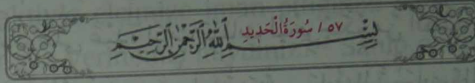 ٥٧ / سُورَةُ الْحَدِيدِ
بِسْمِ اللَّهِ الرَّحْمَٰنِ الرَّحِيمِ